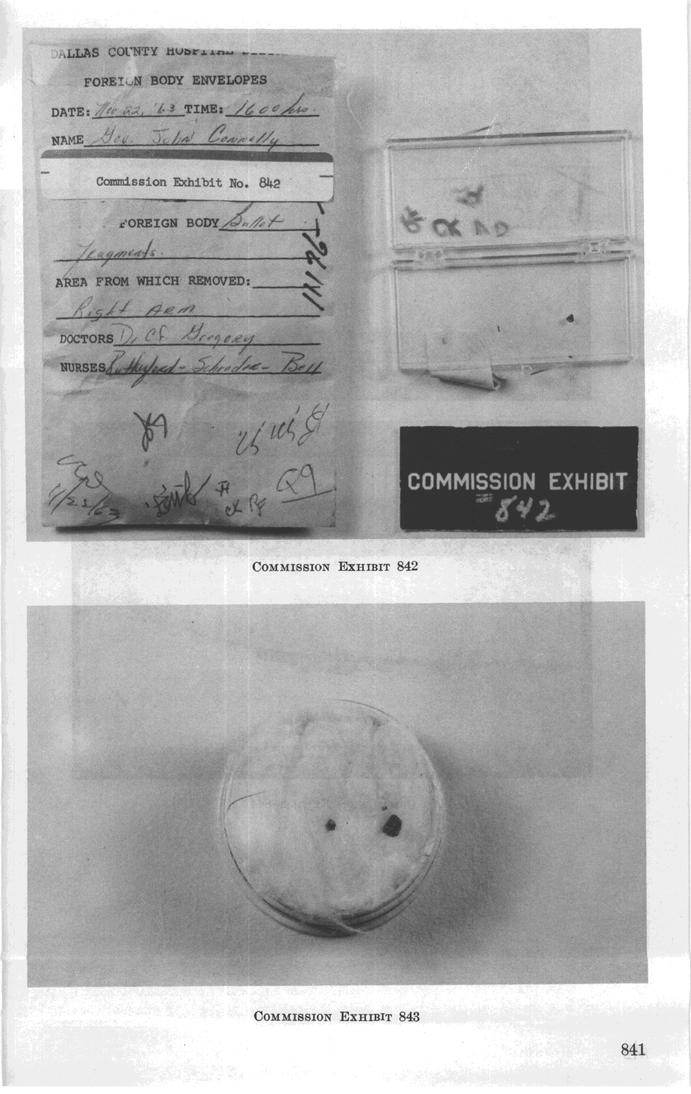 DALLAS COUNTY HOSPITAL
FOREIGN BODY ENVELOPES
DATE: Nov 22, '63 TIME: 1600 hrs.
NAME Gov. John Connally
Commission Exhibit No. 842
FOREIGN BODY Bullet
fragments.
AREA FROM WHICH REMOVED:
Right Arm
DOCTORS Dr CF Gregory
NURSES Rutherford - Schrader - Bell
11/23/63
Q9
COMMISSION EXHIBIT
842
COMMISSION EXHIBIT 842
COMMISSION EXHIBIT 843
841